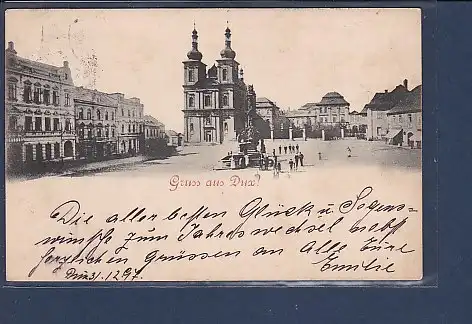 Gruss aus Dux!
Die aller besten Glück u. Segens-
wünsche zum Jahreswechsel nebst
herzlichen Grüssen an Alle Eure
Emilie
Dux 31.1297.